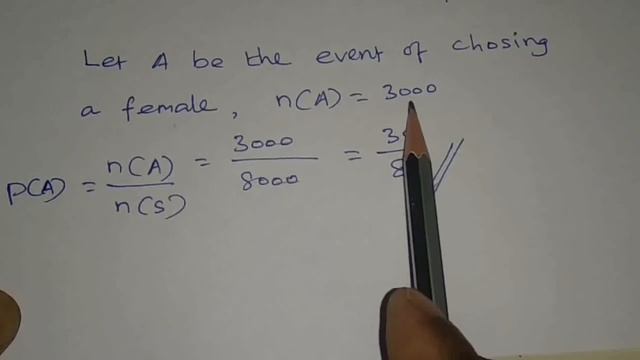 Let A be the event of chosing
a female, n(A) = 3000
P(A) = n(A)/n(S) = 3000/8000 = 3/8